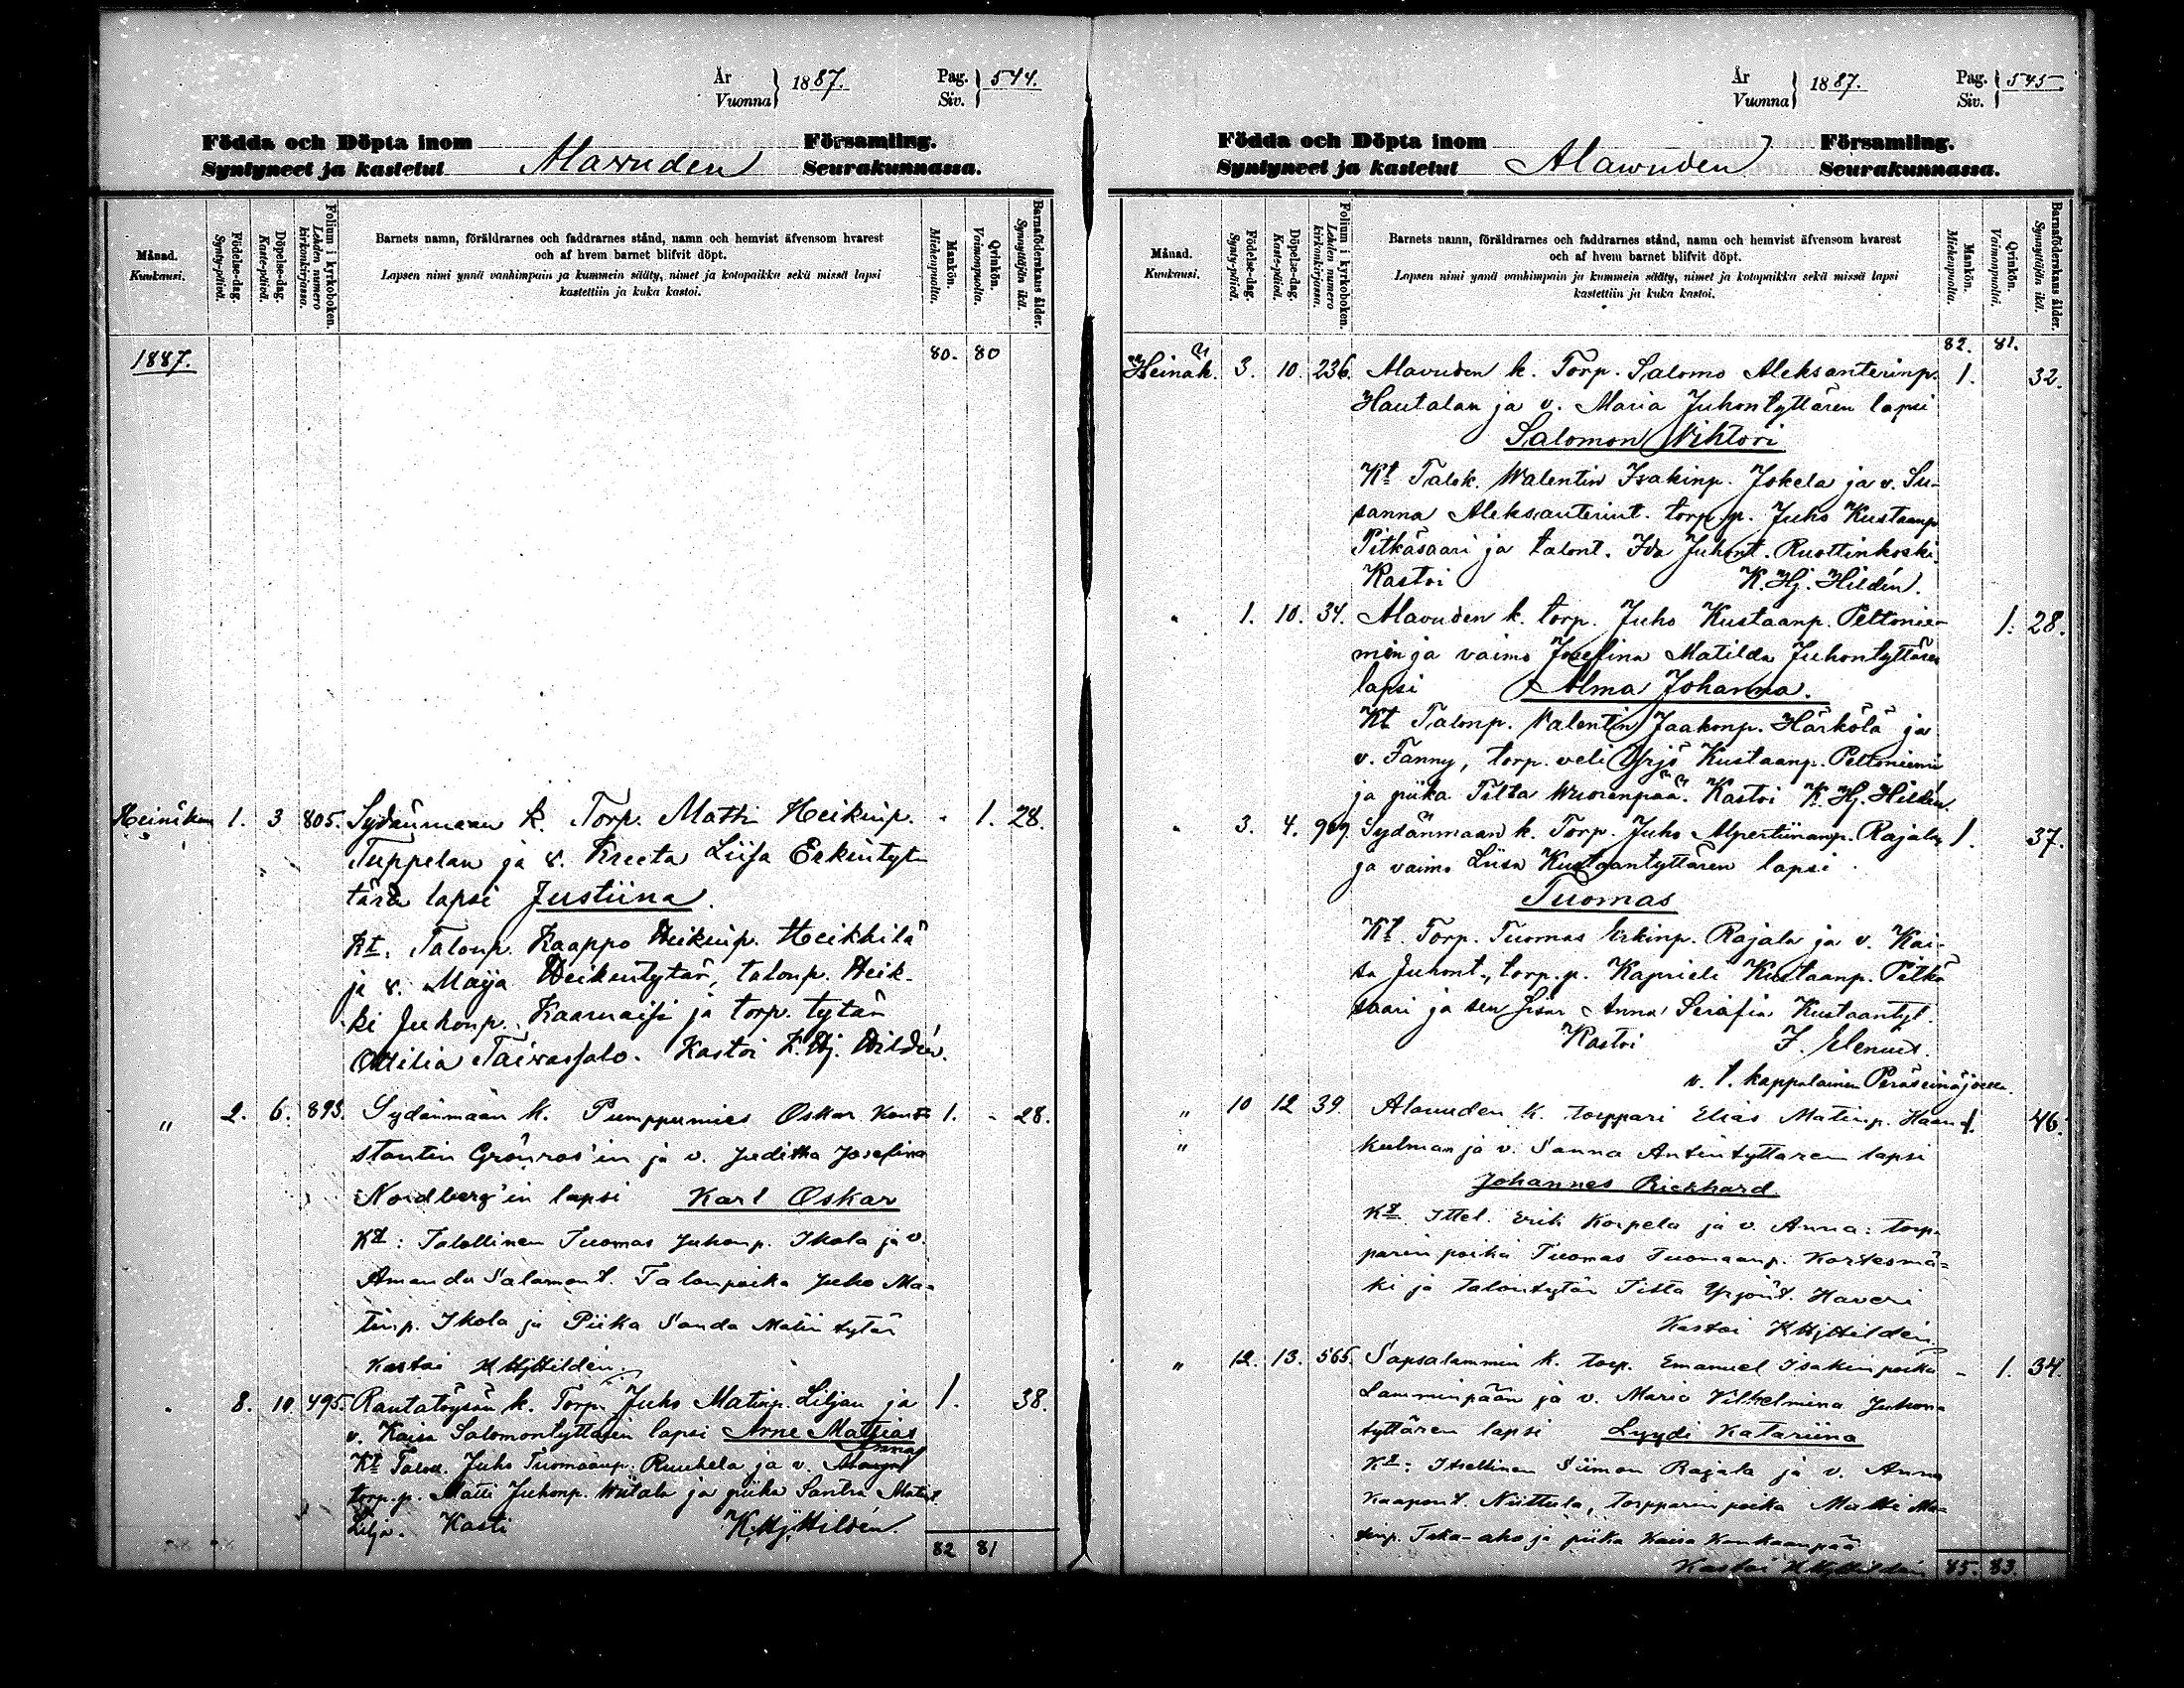 År
Vuonna } 1887.
Pag.
Siv. } 544.
Födda och Döpta inom Församling.
Syntyneet ja kastetut Alavuden Seurakunnassa.
Månad.
Kuukausi.
Födelse-dag.
Synty-päivä.
Döpelse-dag.
Kaste-päivä.
Folium i kyrkoboken.
Lehden numero kirkonkirjassa.
Barnets namn, föräldrarnes och faddrarnes stånd, namn och hemvist äfvensom hvarest
och af hvem barnet blifvit döpt.
Lapsen nimi ynnä vanhimpain ja kummein sääty, nimet ja kotopaikka sekä missä lapsi
kastettiin ja kuka kastoi.
Mankön.
Miehenpuolia.
Qvinkön.
Vaimonpuolia.
Barnaföderskans ålder.
Synnyttäjän ikä.
1887. 80. 80
Heinäkuu 1. 3 805. Sydänmaan k. Torp. Matti Heikinp. - 1. 28.
Tuppelan ja v. Kreeta Liisa Erkintyt
tären lapsi Justiina.
Kt. Talonp. Kaappo Heikinp. Heikkilä
ja v. Maija Heikintytär, talonp. Heik-
ki Juhonp. Kaarnaisi ja torp. tytär
Ottilia Taivassalo. Kastoi K. Hj. Hildén.
" 2. 6. 893. Sydänmaan k. Pumppumies Oskar Kons 1. - 28.
stantin Grönros'in ja v. Juditha Josefina
Nordberg'in lapsi Karl Oskar
Kt: Talollinen Tuomas Juhonp. Ikola ja v.
Amanda Salamont. Talonpoika Juho Ma-
tinp. Ikola ja Piika Sanda Matin tytär
Kastoi K Hj Hildén.
" 8. 10. 495. Rantatöysän k. Torp. Juho Matinp. Liljan ja 1. 38.
v. Kaisa Salomontyttären lapsi Arne Mathias
Anna
Kt Talol. Juho Tuomaanp. Ruuhela ja v.
torp.p. Matti Juhonp. Witala ja piika Santra Matint.
Lilja. Kasti K. Hj. Hildén.
82 81
År
Vuonna } 1887.
Pag.
Siv. } 545
Födda och Döpta inom Församling.
Syntyneet ja kastetut Alawuden Seurakunnassa.
Månad.
Kuukausi.
Födelse-dag.
Synty-päivä.
Döpelse-dag.
Kaste-päivä.
Folium i kyrkoboken.
Lehden numero kirkonkirjassa.
Barnets namn, föräldrarnes och faddrarnes stånd, namn och hemvist äfvensom hvarest
och af hvem barnet blifvit döpt.
Lapsen nimi ynnä vanhimpain ja kummein sääty, nimet ja kotopaikka sekä missä lapsi
kastettiin ja kuka kastoi.
Mankön.
Miehenpuolia.
Qvinkön.
Vaimonpuolia.
Barnaföderskans ålder.
Synnyttäjän ikä.
82. 81.
Heinäk. 3. 10. 236. Alavuden k. Torp. Salomo Aleksanterinp. 1. 32.
Hautalan ja v. Maria Juhontyttären lapsi
Salomon Wihtori
Kt Talok. Walentin Isakinp. Jokela ja v. Su-
sanna Aleksanterint. torp.p. Juho Kustaanp
Pitkäsaari ja talont. Ida Juhont. Ruottinkoski.
Kastoi K. Hj. Hildén.
" 1. 10. 34. Alavuden k. torp. Juho Kustaanp. Peltonie- 1. 28.
min ja vaimo Josefina Matilda Juhontyttären
lapsi Alma Johanna.
Kt Talonp. Valentin Jaakonp. Härkölä ja
v. Fanny, torp. veli Yrjö Kustaanp. Peltoniemi
ja piika Tilta Wuorenpää. Kastoi K. Hj. Hildén.
" 3. 4. 909. Sydänmaan k. Torp. Juho Alpertiinanp. Rajala 1. 37.
ja vaimo Liisa Kustaantyttären lapsi
Tuomas
Kt. Torp. Tuomas Erkinp. Rajala ja v. Kai-
sa Juhont., torp.p. Kaprieli Kustaanp. Pitkä
saari ja sen sisar Anna Serafia Kustaantyt.
Kastoi J. Elenius.
v. t. kappalainen Peräseinäjoella.
" 10 12 39. Alavuden k. torppari Elias Matinp. Haan 1. 46.
" kulman ja v. Sanna Antintyttären lapsi
Johannes Rickhard
Kt. Ittel. Erik Korpela ja v. Anna: torp-
parin poika Tuomas Tuomaanp. Kortesmä-
ki ja talontytär Tilta Yrjönt. Haveri
Kastoi K Hj Hildén.
" 12. 13. 565. Sapsalammin k. torp. Emanuel Isakin poika - 1. 34.
Lamminpään ja v. Maria Vilhelmina Juhon-
tyttären lapsi Lyydi Katariina
Kt: Itsellinen Siimon Rajala ja v. Anna
Kaapont. Niittula, torpparin poika Matti Ma-
tinp. Teka-aho ja piika Kaisa Kankaanpää
Kastoi K Hj Hildén 85. 83.